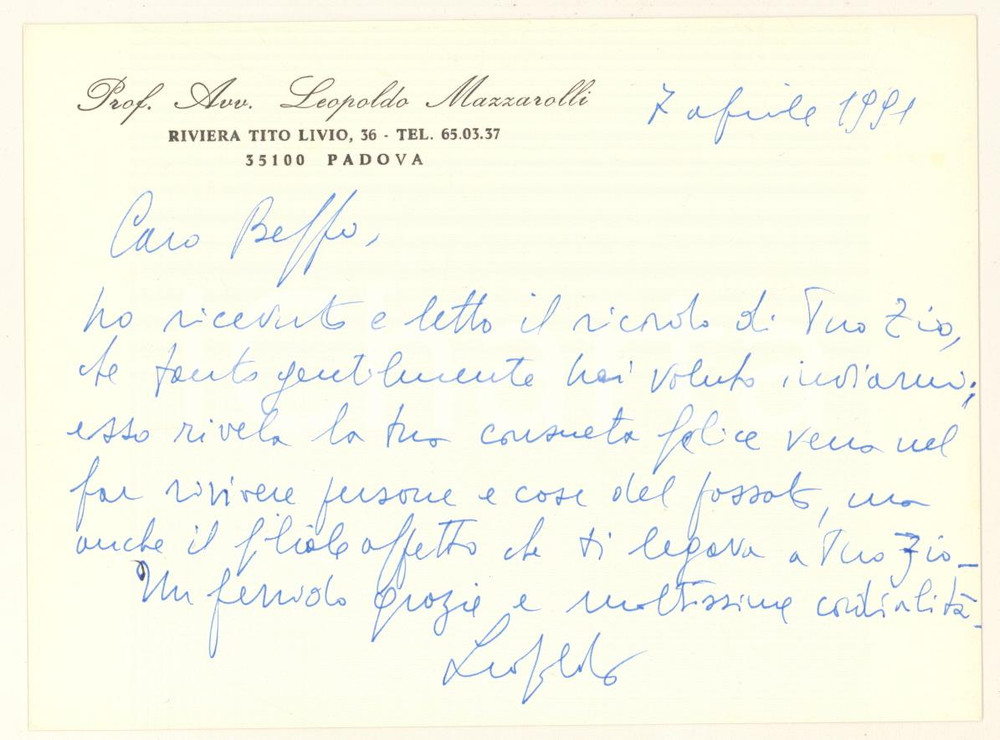 Prof. Avv. Leopoldo Mazzarolli
RIVIERA TITO LIVIO, 36 - TEL. 65.03.37
35100 PADOVA
7 aprile 1991
Caro Beffo,
ho ricevuto e letto il ricordo di Tuo Zio,
che tanto gentilmente hai voluto inviarmi;
esso rivela la tua consueta felice vena nel
far rivivere persone e cose del passato, ma
anche il filiale affetto che ti legava a Tuo Zio_
Un fervido grazie e moltissime cordialità_
Leopoldo